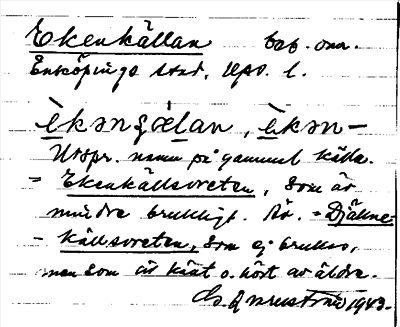 Ekenkällan beb. omr.
Enköpings stad, Upps. l.
èkənʂæ̀lan, èkən-
Urspr. namn på gammal källa.
= Ekenkällsvreten, som är
mindre brukligt. Är. = Djäkne-
- källsvreten, som ej brukas,
men som är känt o. hört av äldre.
1943.